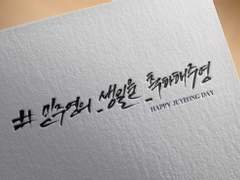 # 민주영의_생일을_축하해주영
HAPPY JUYEONG DAY